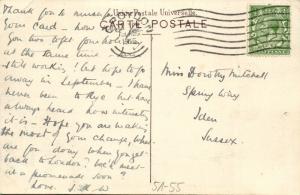 Union Postale Universelle
CARTE POSTALE
Thank you so much for
your card - how
you two to get your holiday
at the same time
still working! but hope to go
away in September - I have
never been to Rye but have
always heard how interesting
it is - Hope you are making
the most of your change, what
are you doing when you get
back to London? Let's meet
at a promenade soon?
love,
Miss Dorothy Mitchell
Spring Way
Iden
Sussex.
5A-55